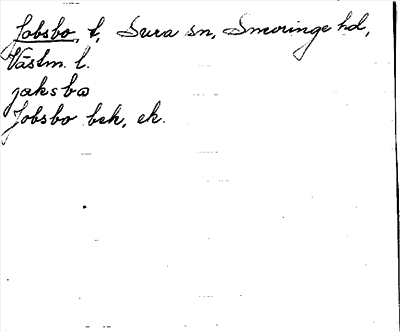 Jobsbo, t, Sura sn, Snevringe hd,
Västm. l.
jaksbo
Jobsbo bek, ek.